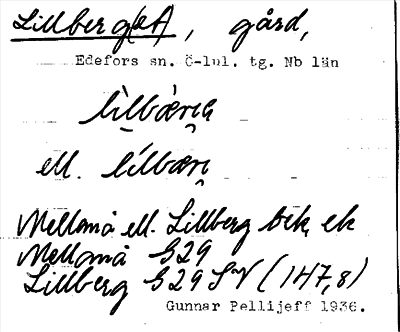 Lillberg(et), gård,
Edefors sn. Ö-lul. tg. Nb län
lìlbæri̯
ell. lílbæri̯
Mellomå ell. Lillberg bek, ek
Mellomå G29
Lillberg G29 SV (1H7,8)
Gunnar Pellijeff 1936.